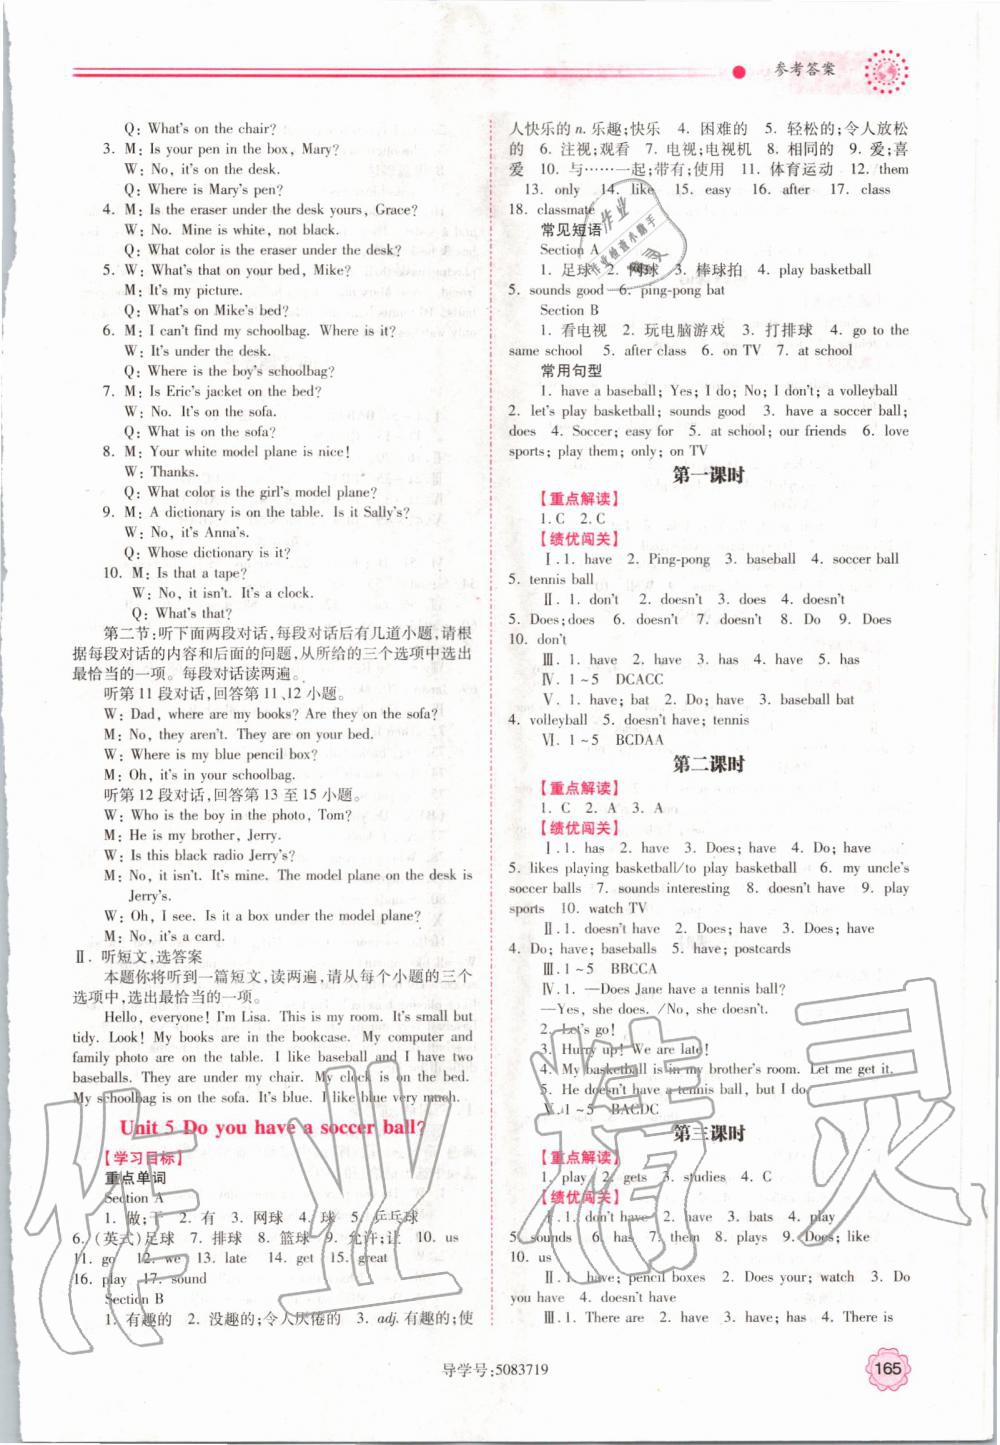 参考答案
Q: What's on the chair?
3. M: Is your pen in the box, Mary?
W: No, it's on the desk.
Q: Where is Mary's pen?
4. M: Is the eraser under the desk yours, Grace?
W: No. Mine is white, not black.
Q: What color is the eraser under the desk?
5. W: What's that on your bed, Mike?
M: It's my picture.
Q: What's on Mike's bed?
6. M: I can't find my schoolbag. Where is it?
W: It's under the desk.
Q: Where is the boy's schoolbag?
7. M: Is Eric's jacket on the bed?
W: No. It's on the sofa.
Q: What is on the sofa?
8. M: Your white model plane is nice!
W: Thanks.
Q: What color is the girl's model plane?
9. M: A dictionary is on the table. Is it Sally's?
W: No, it's Anna's.
Q: Whose dictionary is it?
10. M: Is that a tape?
W: No, it isn't. It's a clock.
Q: What's that?
第二节:听下面两段对话,每段对话后有几道小题,请根
据每段对话的内容和后面的问题,从所给的三个选项中选出
最恰当的一项。每段对话读两遍。
听第11段对话,回答第11、12小题。
W: Dad, where are my books? Are they on the sofa?
M: No, they aren't. They are on your bed.
W: Where is my blue pencil box?
M: Oh, it's in your schoolbag.
听第12段对话,回答第13至15小题。
W: Who is the boy in the photo, Tom?
M: He is my brother, Jerry.
W: Is this black radio Jerry's?
M: No, it isn't. It's mine. The model plane on the desk is
Jerry's.
W: Oh, I see. Is it a box under the model plane?
M: No, it's a card.
Ⅱ. 听短文,选答案
本题你将听到一篇短文,读两遍,请从每个小题的三个
选项中,选出最恰当的一项。
Hello, everyone! I'm Lisa. This is my room. It's small but
tidy. Look! My books are in the bookcase. My computer and
family photo are on the table. I like baseball and I have two
baseballs. They are under my chair. My clock is on the bed.
My schoolbag is on the sofa. It's blue. I like blue very much.
Unit 5 Do you have a soccer ball?
【学习目标】
重点单词
Section A
1. 做;干 2. 有 3. 网球 4. 球 5. 乒乓球
6. (英式)足球 7. 排球 8. 篮球 9. 允许;让 10. us
11. go 12. we 13. late 14. get 15. great
16. play 17. sound
Section B
1. 有趣的 2. 没趣的;令人厌倦的 3. adj. 有趣的;使
人快乐的 n. 乐趣;快乐 4. 困难的 5. 轻松的;令人放松
的 6. 注视;观看 7. 电视;电视机 8. 相同的 9. 爱;喜
爱 10. 与……一起;带有;使用 11. 体育运动 12. them
13. only 14. like 15. easy 16. after 17. class
18. classmate
常见短语
Section A
1. 足球 2. 网球 3. 棒球拍 4. play basketball
5. sounds good 6. ping-pong bat
Section B
1. 看电视 2. 玩电脑游戏 3. 打排球 4. go to the
same school 5. after class 6. on TV 7. at school
常用句型
1. have a baseball; Yes; I do; No; I don't; a volleyball
2. let's play basketball; sounds good 3. have a soccer ball;
does 4. Soccer; easy for 5. at school; our friends 6. love
sports; play them; only; on TV
第一课时
【重点解读】
1. C 2. C
【绩优闯关】
Ⅰ. 1. have 2. Ping-pong 3. baseball 4. soccer ball
5. tennis ball
Ⅱ. 1. don't 2. doesn't 3. does 4. doesn't
5. Does; does 6. doesn't 7. doesn't 8. Do 9. Does
10. don't
Ⅲ. 1. have 2. have 3. has 4. have 5. has
Ⅳ. 1~5 DCACC
Ⅴ. 1. have; bat 2. Do; have 3. have; baseball bat
4. volleyball 5. doesn't have; tennis
Ⅵ. 1~5 BCDAA
第二课时
【重点解读】
1. C 2. A 3. A
【绩优闯关】
Ⅰ. 1. has 2. have 3. Does; have 4. Do; have
5. likes playing basketball/to play basketball 6. my uncle's
soccer balls 7. sounds interesting 8. doesn't have 9. play
sports 10. watch TV
Ⅱ. 1. doesn't have 2. Does; have 3. Does; have
4. Do; have; baseballs 5. have; postcards
Ⅲ. 1~5 BBCCA
Ⅳ. 1. —Does Jane have a tennis ball?
—Yes, she does. /No, she doesn't.
2. Let's go!
3. Hurry up! We are late!
4. My basketball is in my brother's room. Let me get it.
5. He doesn't have a tennis ball, but I do.
Ⅴ. 1~5 BACDC
第三课时
【重点解读】
1. play 2. gets 3. studies 4. C
【绩优闯关】
Ⅰ. 1. don't have 2. have 3. bats 4. play
5. sounds 6. has 7. them 8. plays 9. like
10. us
Ⅱ. 1. have; pencil boxes 2. Does your; watch 3. Do
you have 4. doesn't have
Ⅲ. 1. There are 2. have 3. has 4. There is
导学号:5083719
165
作业精灵